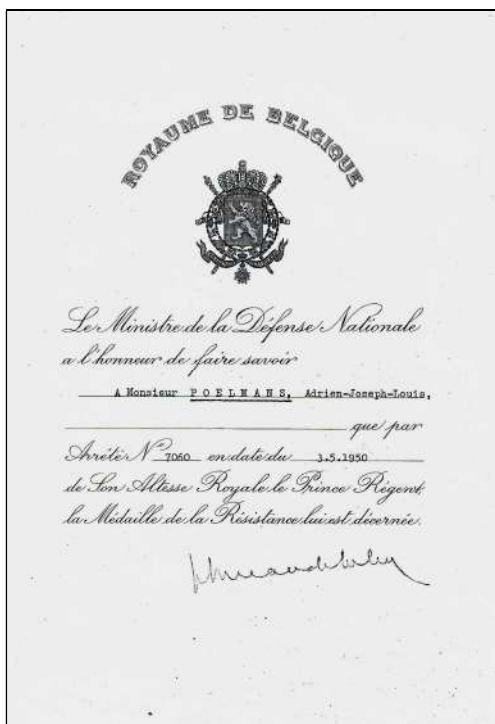 ROYAUME DE BELGIQUE
Le Ministre de la Défense Nationale
a l'honneur de faire savoir
A Monsieur POELMANS, Adrien-Joseph-Louis,
que par
Arrêté Nº 7060 en date du 3.5.1950
de Son Altesse Royale le Prince Régent,
la Médaille de la Résistance lui est décernée.